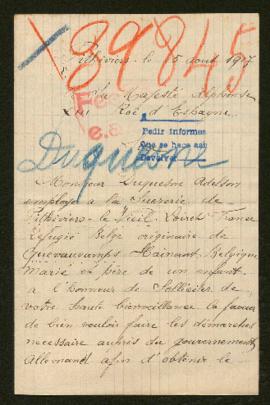 89845
Pithiviers le 15 aout 1917
Sa Majesté Alphonse
Roi d'Espagne
Pedir informes
Que se hace así
Devolver
Duquesne
Monsieur Duquesne Adelson
employé a la Sucrerie de
Pithiviers-le-Vieil-Loiret-France
Réfugié Belge originaire de
Quevaucamps-Hainaut-Belgique
Marié et père de un enfant
a l'honneur de Solliciter de
votre haute bienveillance la faveur
de bien vouloir faire les démarches
necessaire auprès du gouvernement
Allemand afin d'obtenir le